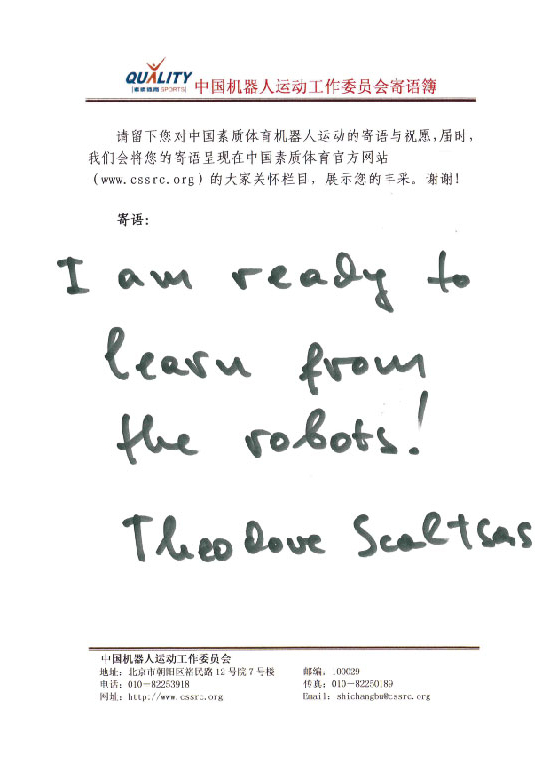 QUALITY
素质体育 SPORTS
中国机器人运动工作委员会寄语簿
请留下您对中国素质体育机器人运动的寄语与祝愿,届时,
我们会将您的寄语呈现在中国素质体育官方网站
(www.cssrc.org)的大家关怀栏目,展示您的丰采。谢谢!
寄语:
I am ready to
learn from
the robots!
Theodore Scaltsas
中国机器人运动工作委员会
地址: 北京市朝阳区裕民路12号院7号楼 邮编: 100029
电话: 010-82253918 传真: 010-82250189
网址: http://www.cssrc.org Email: shichangbu@cssrc.org